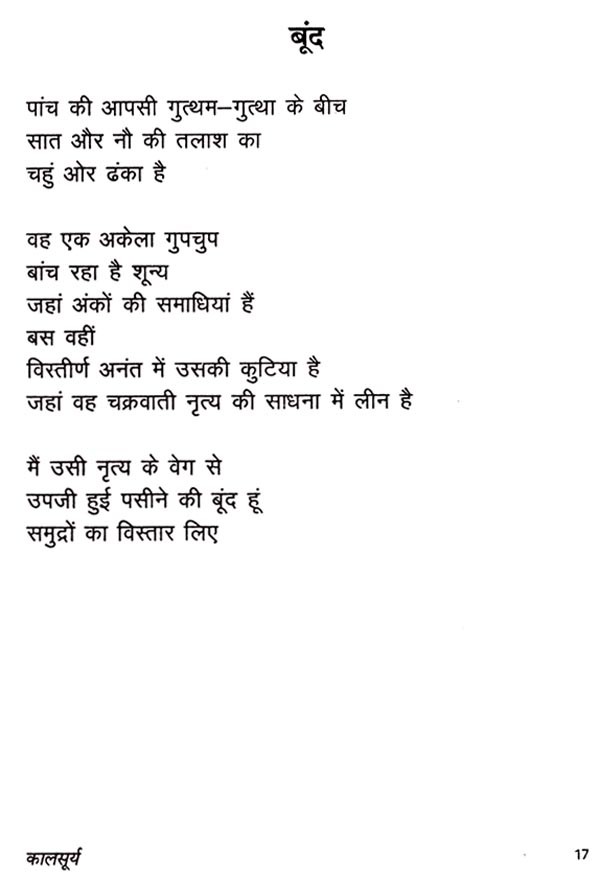 बूंद
पांच की आपसी गुत्थम–गुत्था के बीच
सात और नौ की तलाश का
चहुं ओर ढंका है
वह एक अकेला गुपचुप
बांच रहा है शून्य
जहां अंकों की समाधियां हैं
बस वहीं
विरतीर्ण अनंत में उसकी कुटिया है
जहां वह चक्रवाती नृत्य की साधना में लीन है
मैं उसी नृत्य के वेग से
उपजी हुई पसीने की बूंद हूं
समुद्रों का विस्तार लिए
कालसूर्य 17